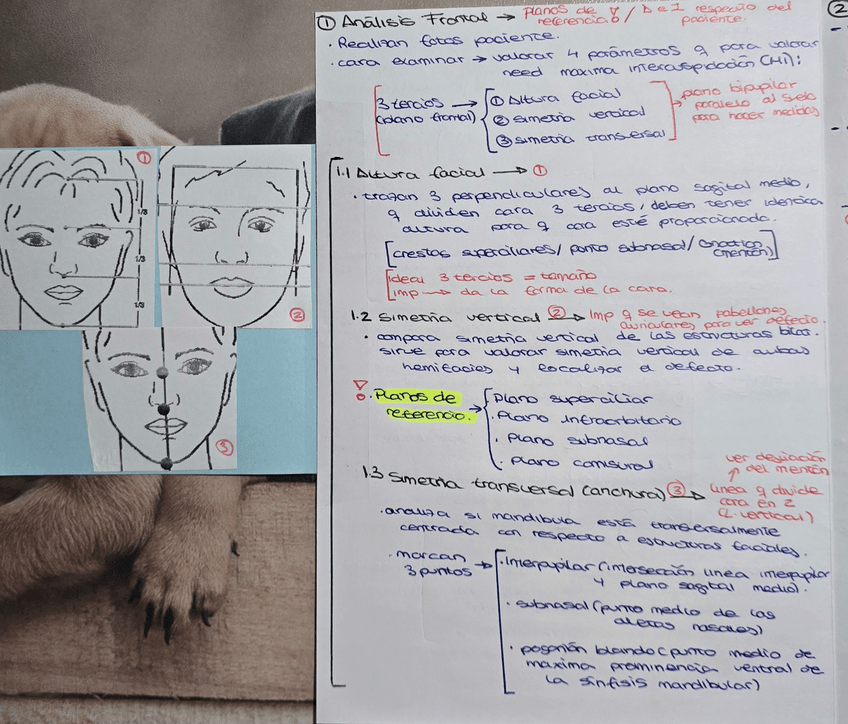 ① Análisis Frontal → Planos de referencia! / 1 respecto del paciente.
· Realizan fotos paciente.
· cara examinar → valorar 4 parámetros q para valorar
need maxima intercuspidación (HI):
3 tercios → (plano frontal)
① Altura facial
② Simetría vertical
③ Simetria transversal
plano bipupilar
paralelo al suelo
para hacer medidas
1.1 Altura facial → ①
· trazan 3 perpendiculares al plano sagital medio,
q dividen cara 3 tercios / deben tener identica
altura para q cara esté proporcionada.
[crestas superciliares / punto subnasal / Gnation (mentón)]
Ideal 3 tercios = tamaño
imp → da la forma de la cara.
1.2 Simetria vertical ② → Imp q se vean pabellones
auriculares para ver defecto.
· compara simetria vertical de las estructuras bilat.
sirve para valorar simetria vertical de ambas
hemifacies y localizar el defecto.
! · Planos de
referencia. →
Plano superciliar
· Plano infraorbitario
· Plano subnasal
· Plano comisural
1.3 Simetria transversal (anchura) ③ → linea q divide
cara en 2
(L. vertical)
ver desviación
del mentón
· analiza si mandibula está transversalmente
centrada con respecto a estructuras faciales.
· marcan
3 puntos →
· Interpupilar (intersección linea interpupilar
y plano sagital medio).
· subnasal (punto medio de las
aletas nasales)
· pogonión blando (punto medio de
maxima prominencia ventral de
la sínfisis mandibular)
②
①
1/3
1/3
1/3
②
③